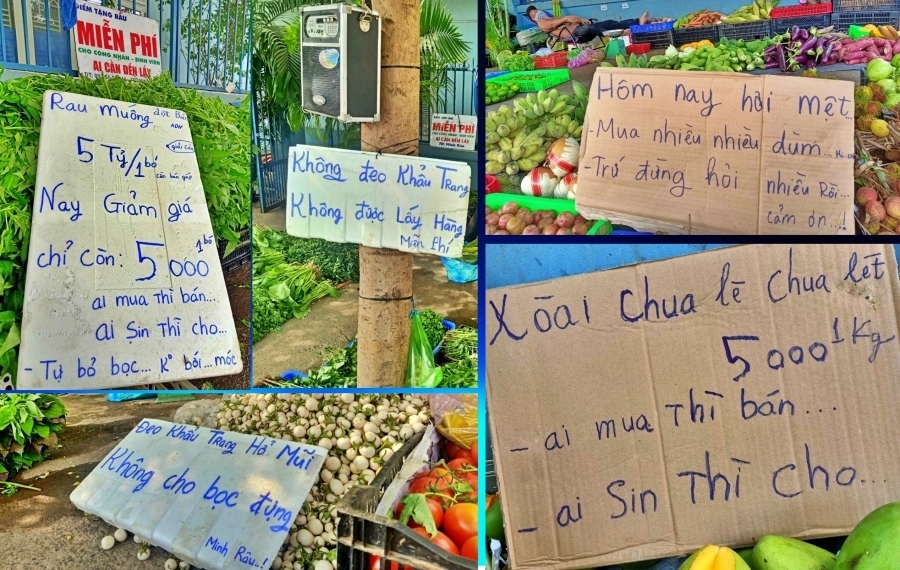 ĐIỂM TẶNG RAU
MIỄN PHÍ
CHO CÔNG NHÂN - SINH VIÊN
AI CẦN ĐẾN LẤY
Rau muống đột Biến
ADN
5 Tỷ/1 bó
Nay Giảm giá
chỉ còn: 5000 1 bó
ai mua thì bán...
ai Sin Thì cho...
- Tự bỏ bọc... K° bới... móc
MIỄN PHÍ
Không đeo Khẩu Trang
Không được Lấy Hàng
Miễn Phí
Hôm nay hơi mệt
- Mua nhiều nhiều dùm...
- Trứ đừng hỏi nhiều Rồi...
cảm ơn...!
Đeo Khẩu Trang Hả Mũi
Không cho bọc đựng
Minh Râu..!
Xoài chua lè chua lét
5000 1 Kg
- ai mua Thì bán...
- ai Sin Thì Cho...